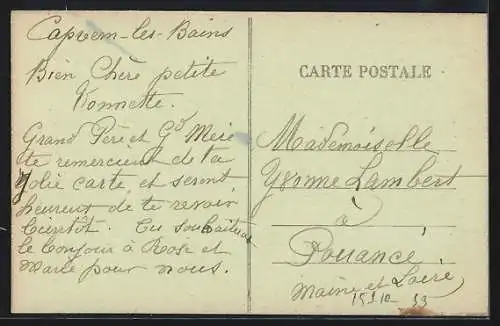 Capvern-les-Bains
Bien Chère petite
Yonnette.
Grand Père et Gd Mère
te remercient de ta
Jolie carte, et seront
heureux de te revoir
bientôt. Tu souhaiteras
le bonjour à Rose et
Marie pour nous.
CARTE POSTALE
Mademoiselle
Yvonne Lambert
à
Pouancé
Maine et Loire